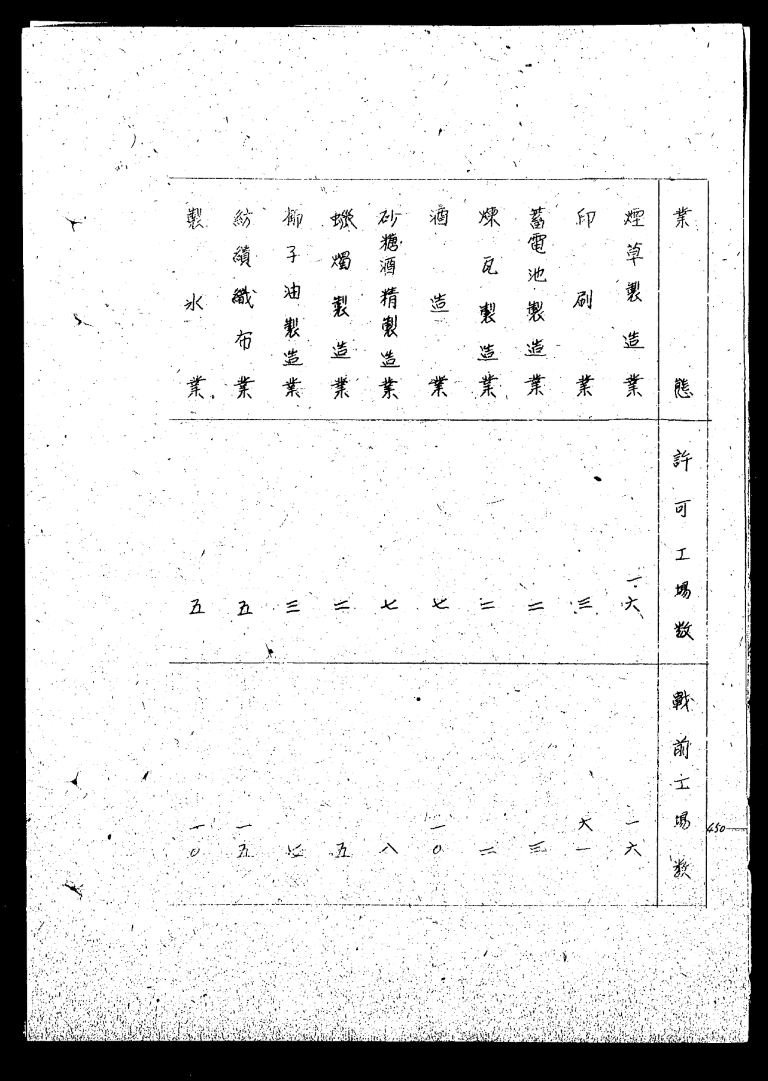 業態 許可工場数 戰前工場数
煙草製造業 一六 一六
印刷業 三 六一
蓄電池製造業 二 三
煉瓦製造業 二 二
酒造業 七 一〇
砂糖酒精製造業 七 八
蝋燭製造業 二 五
椰子油製造業 三 七
紡績織布業 五 一五
製氷業 五 一〇
450